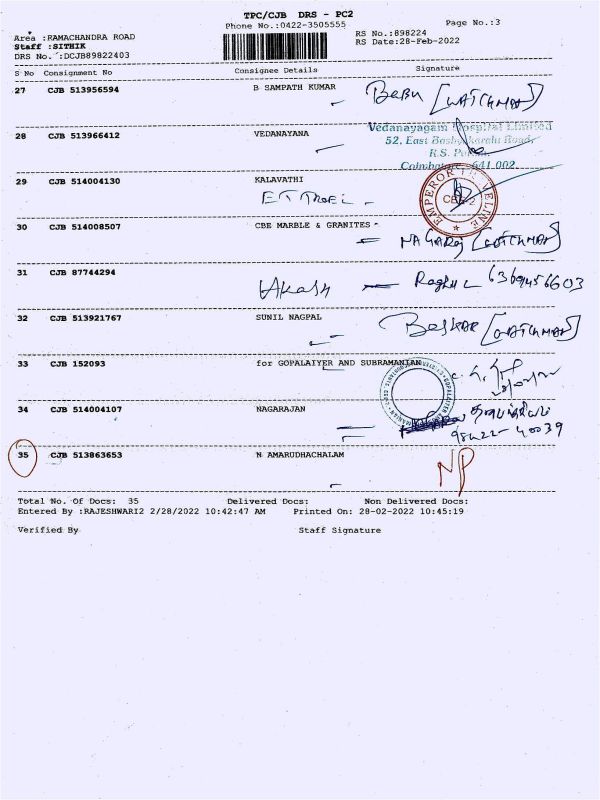 TPC/CJB DRS - PC2
Phone No.:0422-3505555
Page No.:3
Area :RAMACHANDRA ROAD
Staff :SITHIK
DRS No. :DCJB89822403
RS No.:898224
RS Date:28-Feb-2022
S No Consignment No Consignee Details Signature
27 CJB 513956594 B SAMPATH KUMAR
BABU [WATCHMAN]
28 CJB 513966412 VEDANAYANA
Vedanayagam Hospital Limited
52, East Bashyakarahi Road,
R.S. Puram,
Coimbatore - 641 002.
29 CJB 514004130 KALAVATHI
EMPEROR TRAVELINE
CBE-2
30 CJB 514008507 CBE MARBLE & GRANITES -
NAGARAJ [WATCHMAN]
31 CJB 87744294
Akash Raghul 6369456603
32 CJB 513921767 SUNIL NAGPAL
Baskar [WATCHMAN]
33 CJB 152093 for GOPALAIYER AND SUBRAMANIAN
34 CJB 514004107 NAGARAJAN
98422-40039
35 CJB 513863653 N AMARUDHACHALAM
NP
Total No. Of Docs: 35 Delivered Docs: Non Delivered Docs:
Entered By :RAJESHWARI2 2/28/2022 10:42:47 AM Printed On: 28-02-2022 10:45:19
Verified By Staff Signature